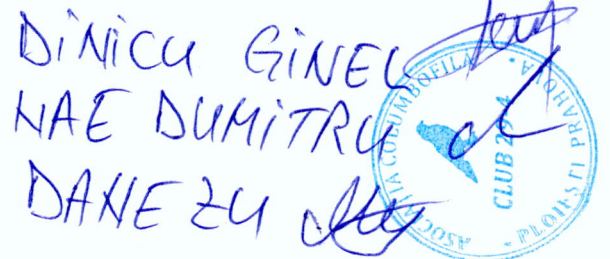 DINICU GINEL
NAE DUMITRU
DANEZU
ASOCIATIA COLUMBOFILA
CLUB
PLOIESTI PRAHOVA